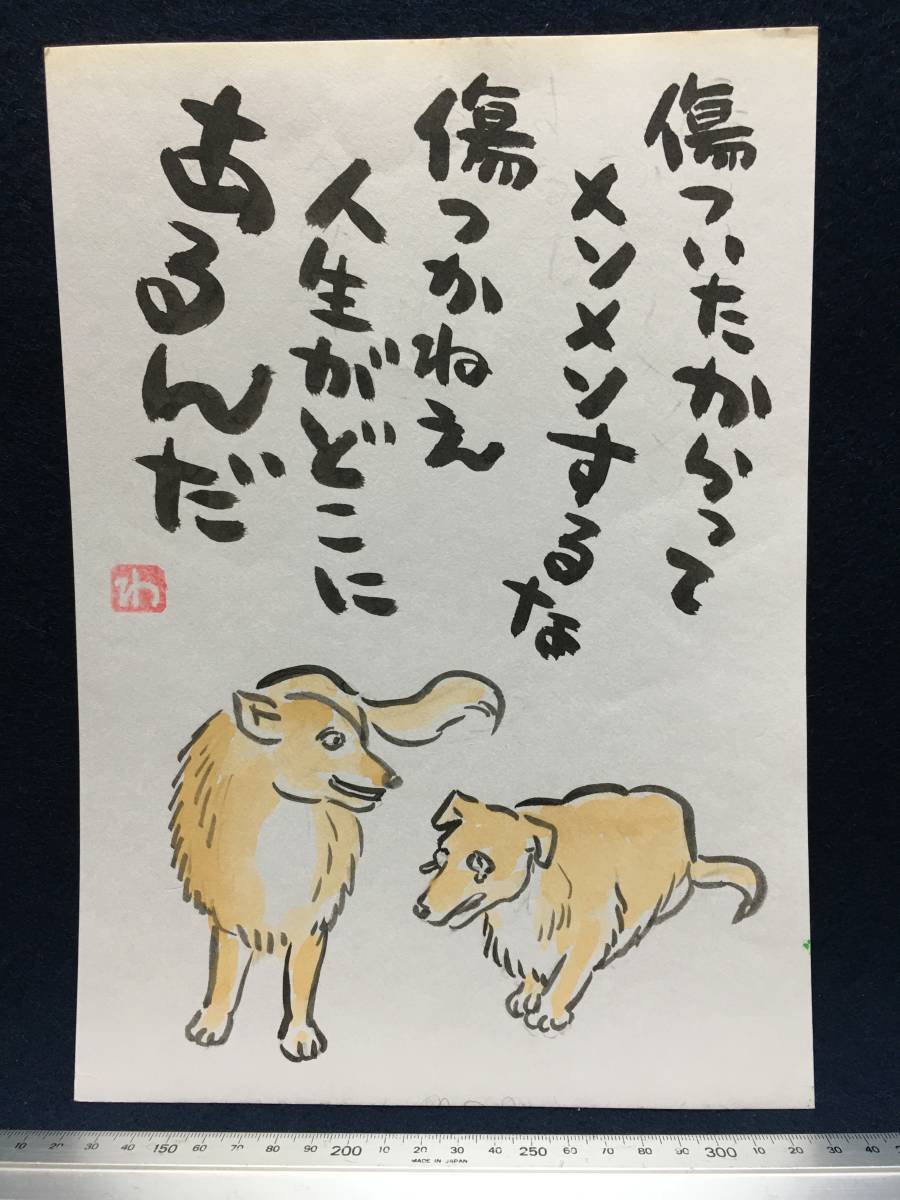 傷ついたからって
メソメソするな
傷つかねえ
人生がどこに
あるんだ
わ
10 20 30 40 150 60 70 80 90 200 10 20 30 40 250 60 70 80 90 300 10 20 30 40
MADE IN JAPAN